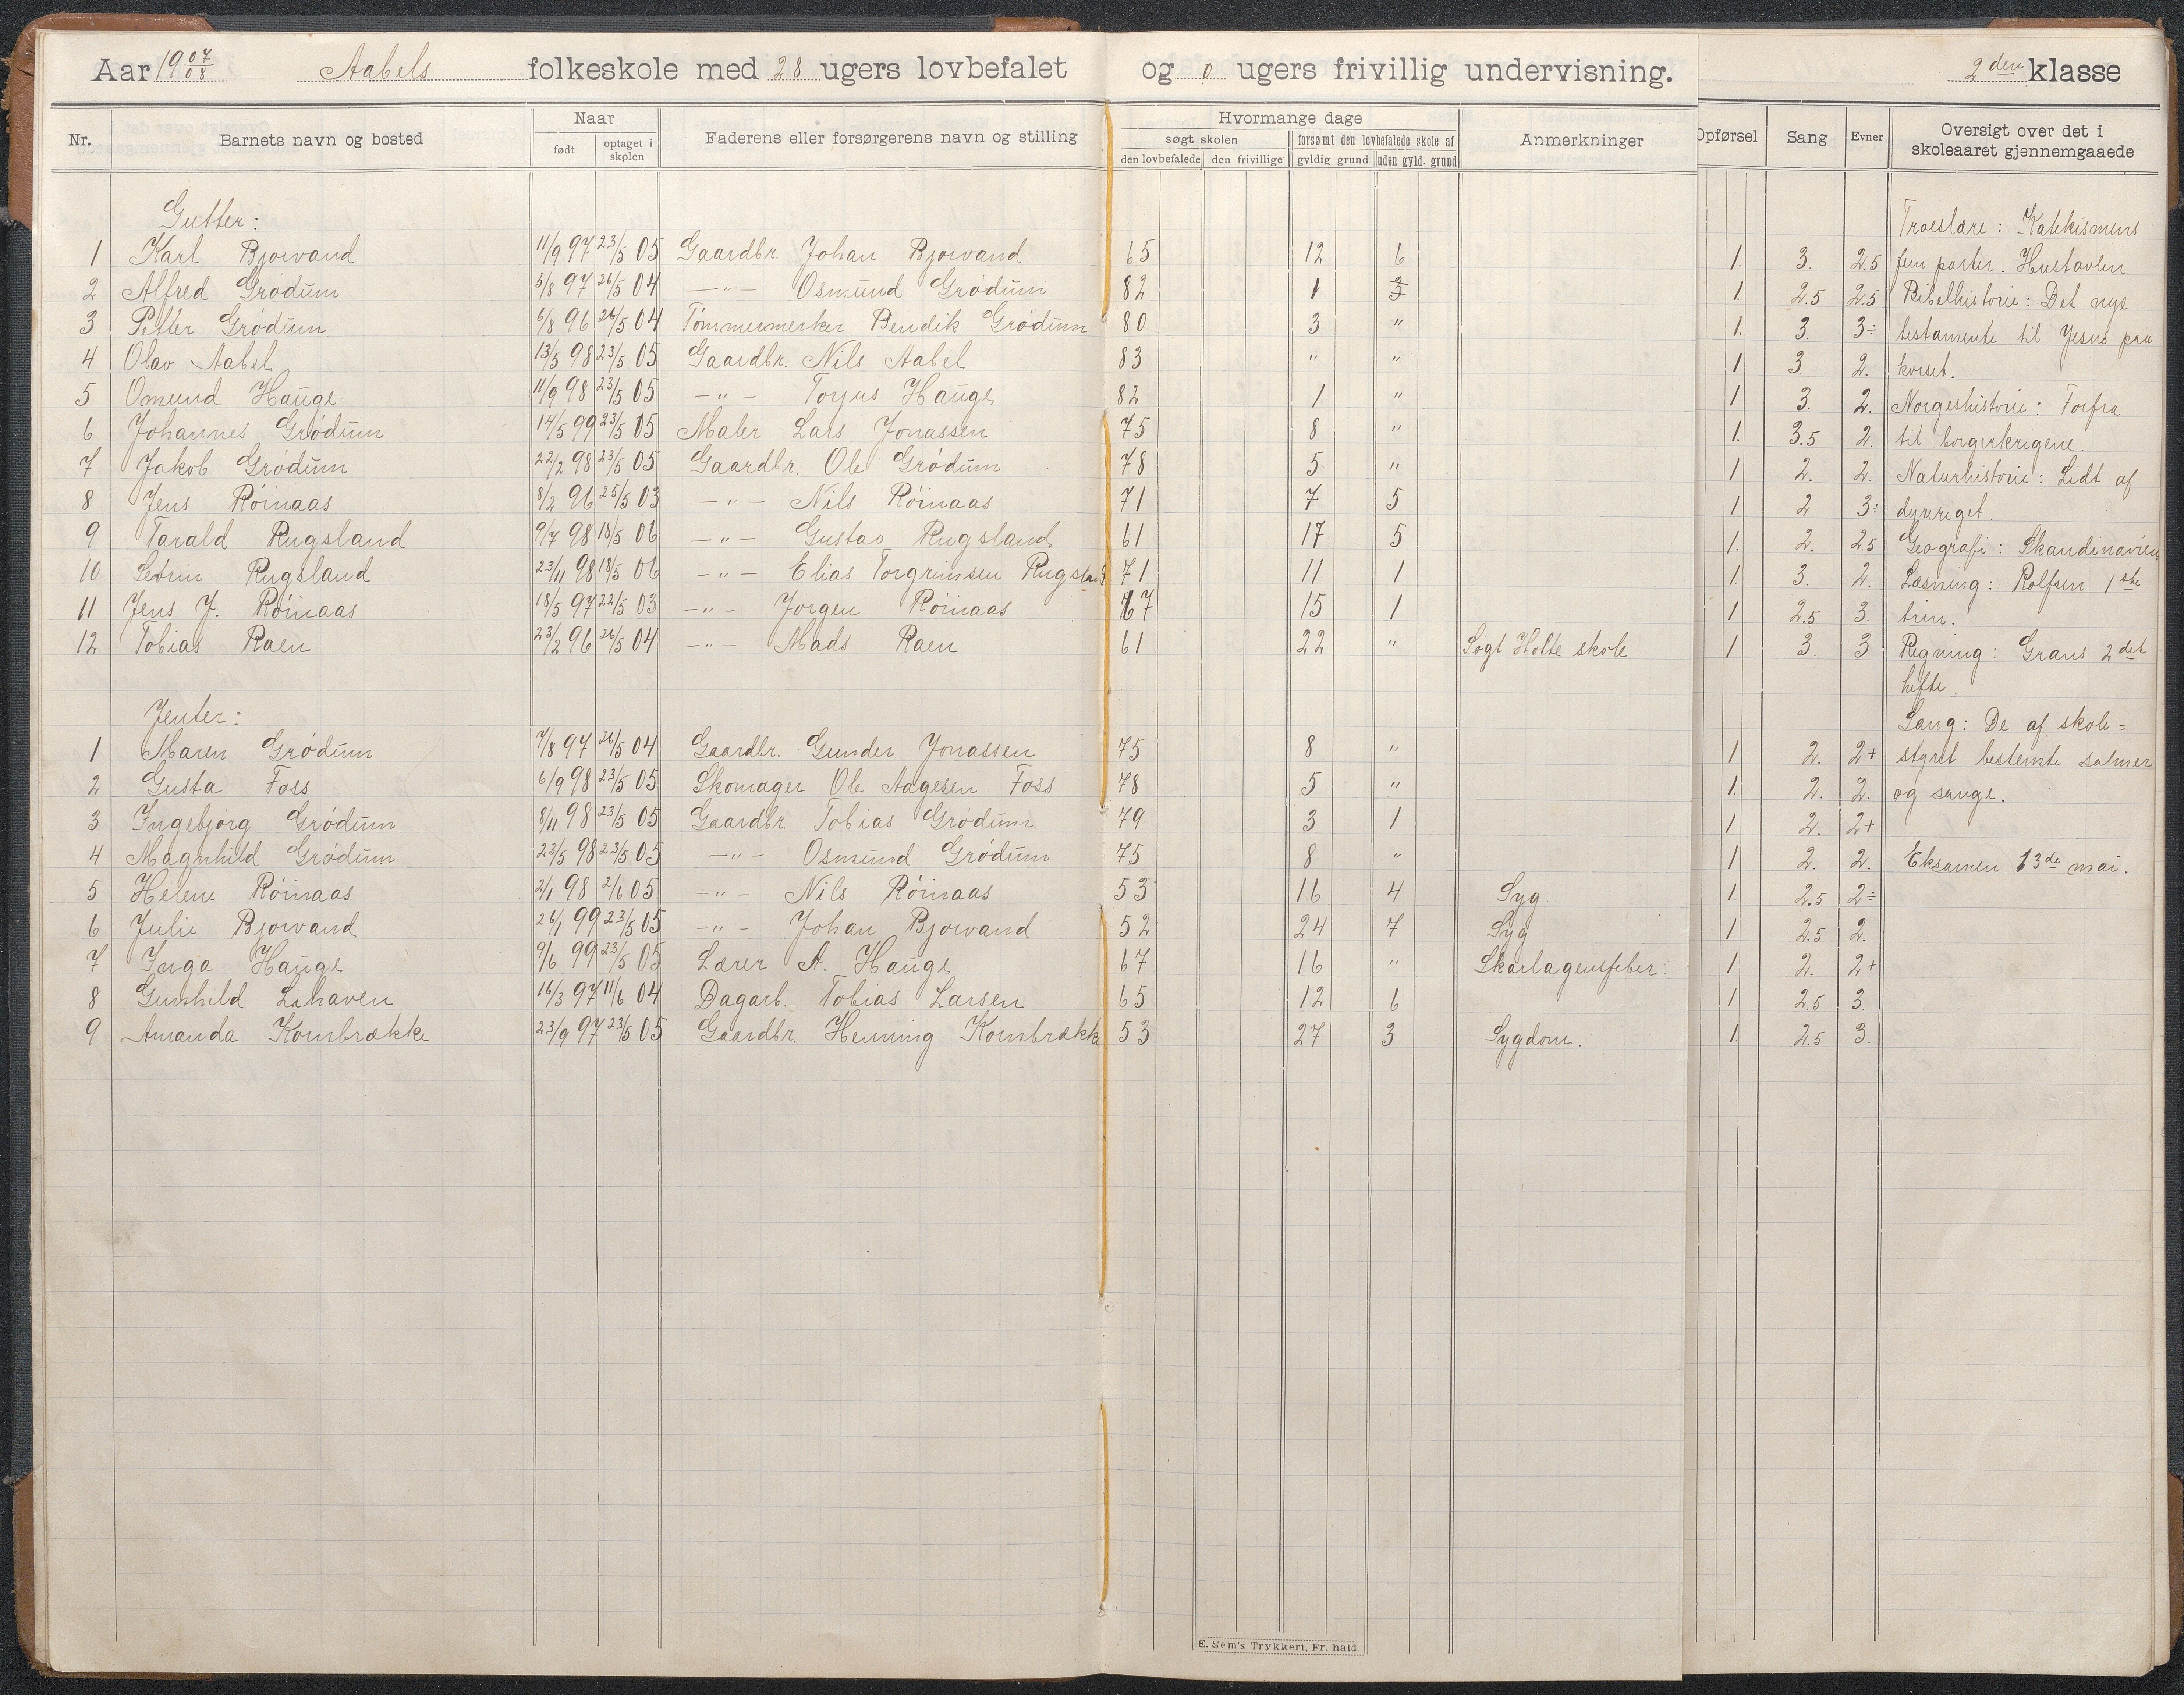 Aar 19 07/08 Aabels folkeskole med 28 ugers lovbefalet og 0 ugers frivillig undervisning. 2den klasse
Nr. Barnets navn og bosted Naar Faderens eller forsørgerens navn og stilling Hvormange dage Anmerkninger Opførsel Sang Evner Oversigt over det i skoleaaret gjennemgaaede
født optaget i skolen søgt skolen forsømt den lovbefalede skole af
den lovbefalede den frivillige gyldig grund uden gyld. grund
Gutter: Troeslære: Katekismens
1 Karl Bjorvand 11/9 97 23/5 05 Gaardbr. Johan Bjorvand 65 12 6 1. 3. 2.5 fem parter. Hustavlen
2 Alfred Grødum 5/8 97 26/5 04 —"— Osmund Grødum 82 1 1. 2.5 2.5 Bibelhistorie: Det nye
3 Petter Grødum 6/8 96 26/5 04 Tømmermerker Bendik Grødum 80 3 " 1. 3. 3÷ testamente til Jesus paa
4 Olav Aabel 13/5 98 23/5 05 Gaardbr. Nils Aabel 83 " " 1 3 2. korset.
5 Omund Hauge 11/9 98 23/5 05 —"— Torjus Hauge 82 1 " 1 3. 2. Norgeshistorie: Forfra
6 Johannes Grødum 14/5 99 23/5 05 Maler Lars Jonassen 75 8 " 1. 3.5 2. til borgerkrigene.
7 Jakob Grødum 22/2 98 23/5 05 Gaardbr. Ole Grødum 78 5 " 1 2. 2. Naturhistorie: Lidt af
8 Jens Röinaas 8/2 96 25/5 03 —"— Nils Röinaas 71 7 5 1 2 3÷ dyreriget.
9 Tarald Rugsland 9/7 98 18/5 06 —"— Gustav Rugsland 61 17 5 1. 2. 2.5 Geografi: Skandinavien
10 Sevrin Rugsland 23/11 98 18/5 06 —"— Elias Torgrimsen Rugsland 71 11 1 1 3. 2. Læsning: Rolfsen 1ste
11 Jens J. Röinaas 18/5 97 22/5 03 —"— Jørgen Röinaas 67 15 1 1 2.5 3. trin.
12 Tobias Raen 23/2 96 26/5 04 —"— Mads Raen 61 22 " Søgt Holte skole 1 3. 3 Regning: Grans 2det
hefte.
Jenter: Sang: De af skole=
1 Maren Grødum 7/8 97 26/5 04 Gaardbr. Gunder Jonassen 75 8 " 1 2. 2+ styret bestemte salmer
2 Gusta Foss 6/9 98 23/5 05 Skomager Ole Aagesen Foss 78 5 " 1. 2. 2. og sange.
3 Ingebjørg Grødum 8/11 98 23/5 05 Gaardbr. Tobias Grødum 79 3 1 1 2. 2+
4 Magnhild Grødum 23/5 98 23/5 05 —"— Osmund Grødum 75 8 " 1 2. 2. Eksamen 13de mai.
5 Helene Röinaas 2/1 98 2/6 05 —"— Nils Röinaas 53 16 4 Syg 1. 2.5 2÷
6 Julie Bjorvand 26/1 99 23/5 05 —"— Johan Bjorvand 52 24 7 Syg 1 2.5 2.
7 Inga Hauge 9/6 99 23/5 05 Lærer A. Hauge 67 16 " Skarlagensfeber. 1 2. 2+
8 Gunhild Lihaven 16/3 97 11/6 04 Dagarb. Tobias Larsen 65 12 6 1 2.5 3.
9 Amanda Kornbrække 23/9 97 23/5 05 Gaardbr. Henning Kornbrække 53 27 3 Sygdom. 1. 2.5 3.
E. Sem's Trykkeri, Fr. hald.